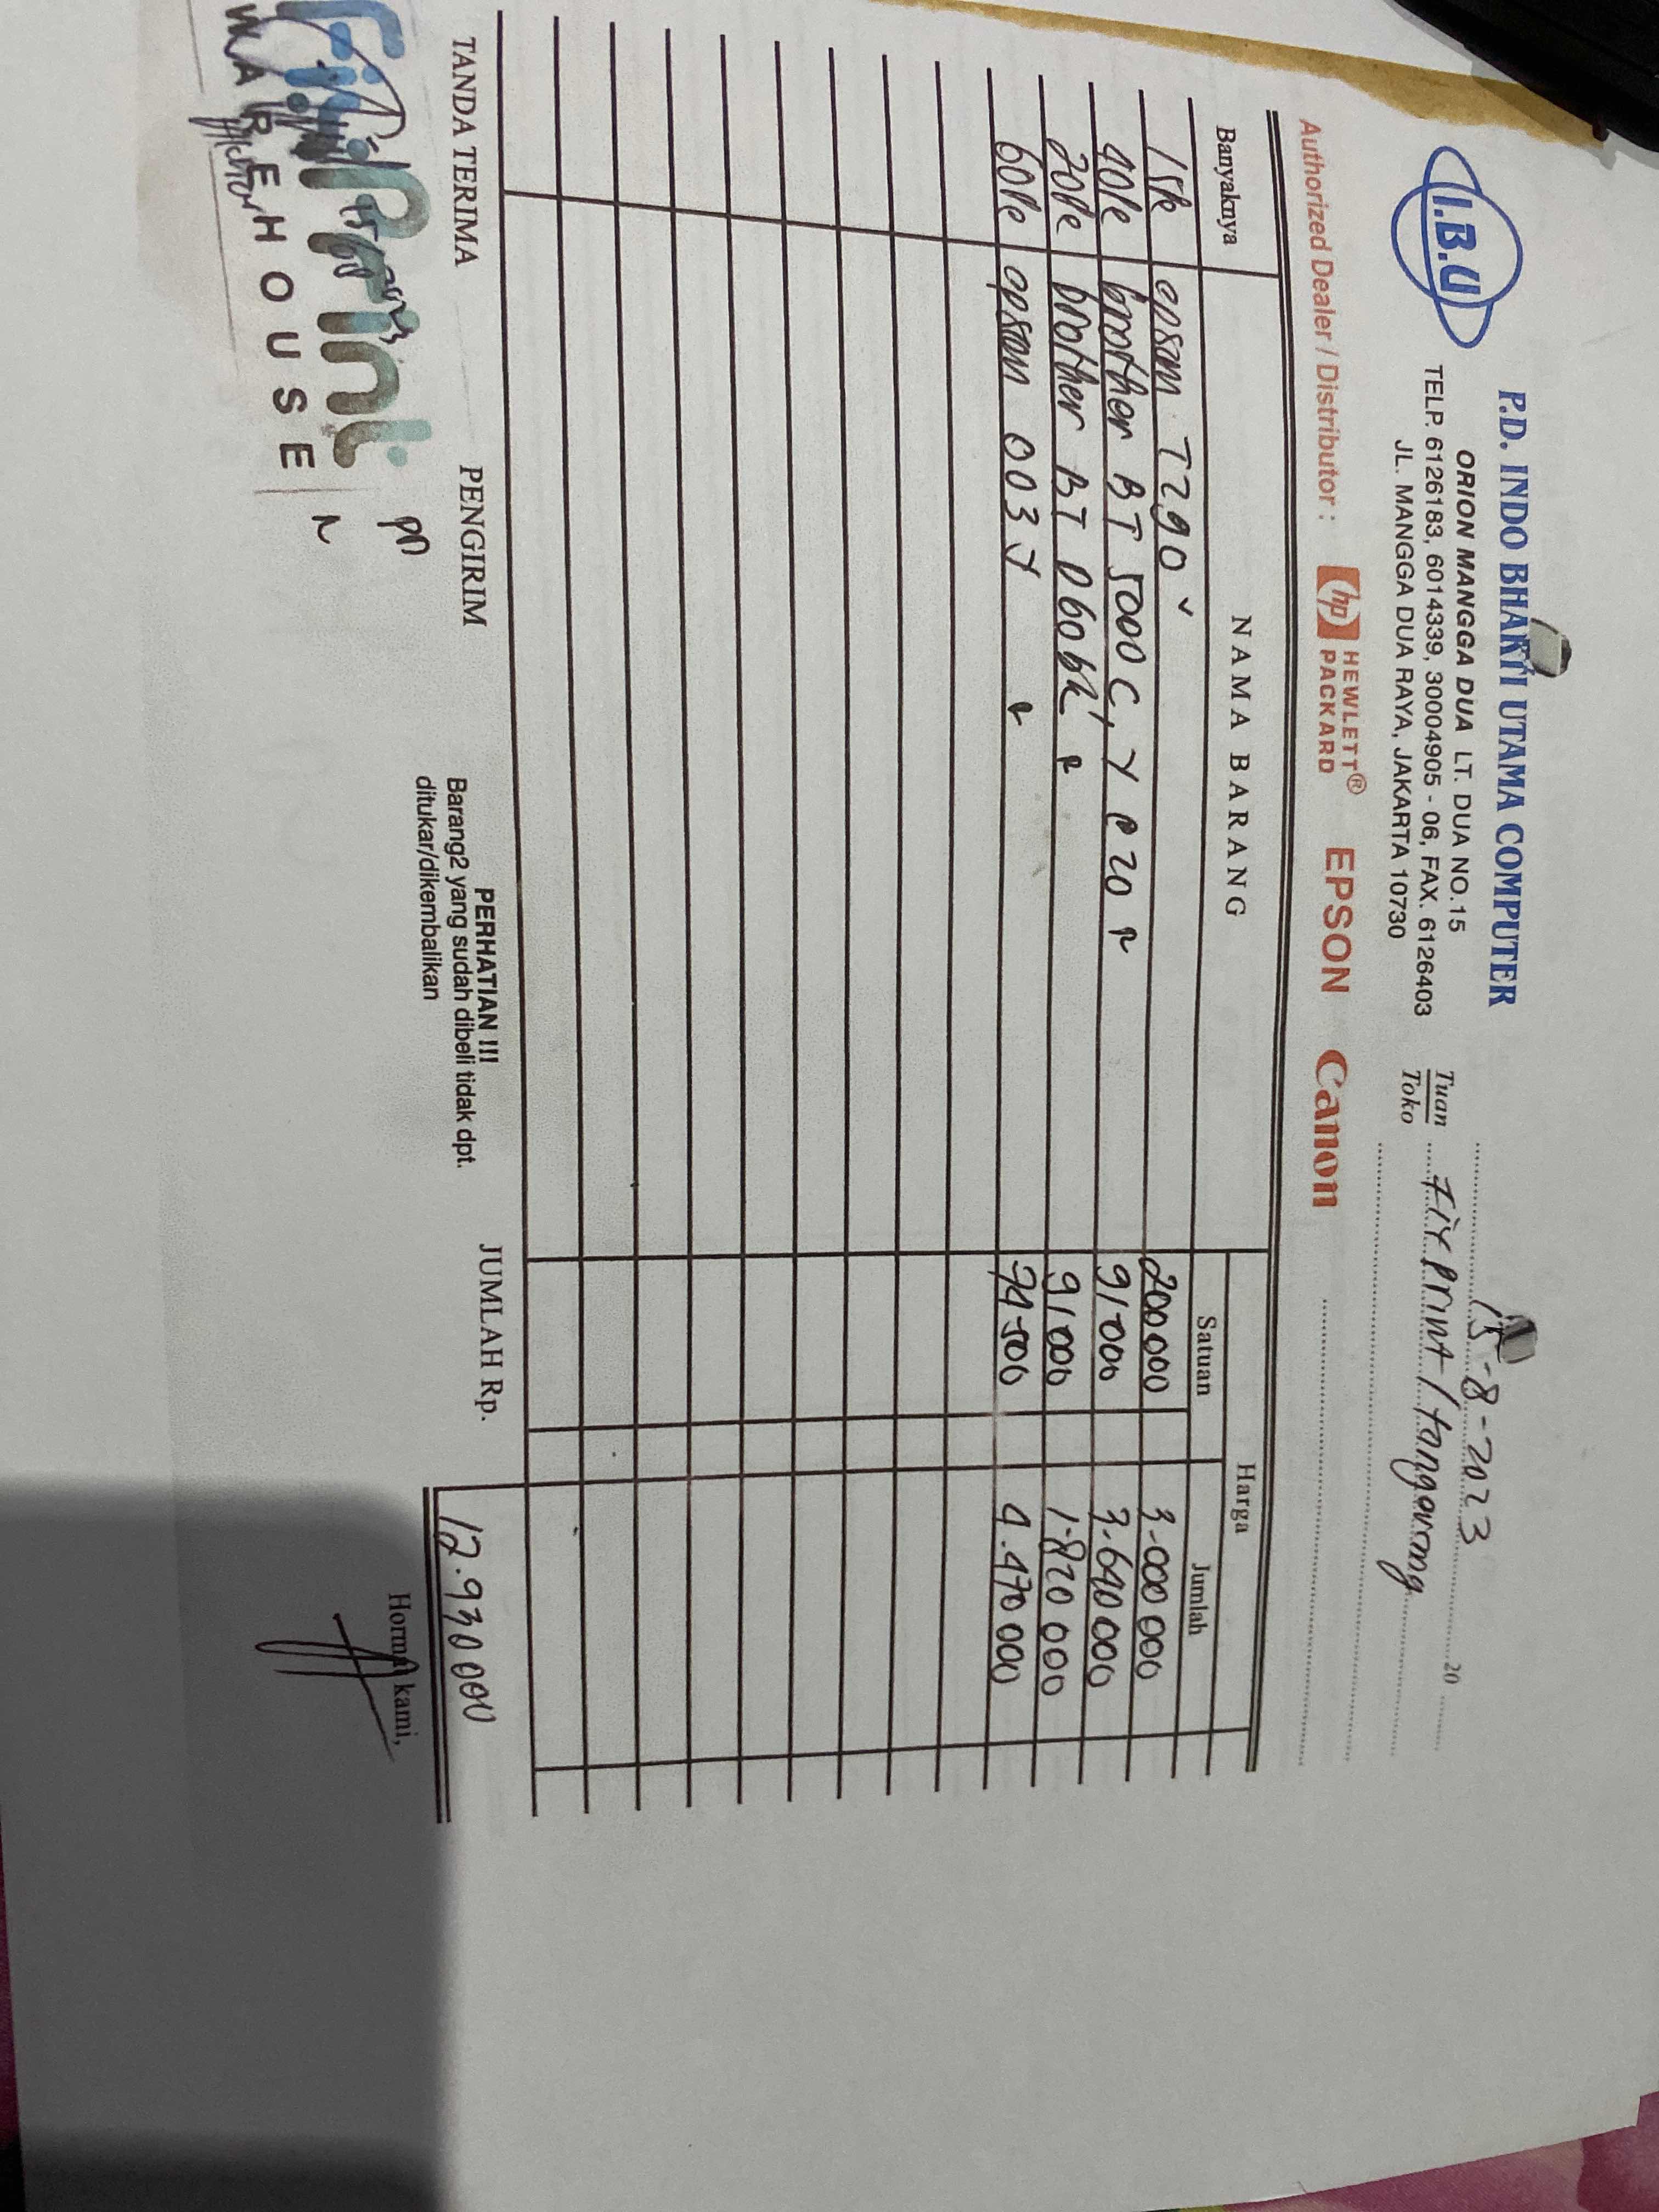 I.B.U
P.D. INDO BHAKTI UTAMA COMPUTER
ORION MANGGA DUA LT. DUA NO.15
TELP. 6126183, 6014339, 30004905 - 06, FAX. 6126403
JL. MANGGA DUA RAYA, JAKARTA 10730
15-8-2023 20
Tuan
Toko
Fix Print / tangerang
Authorized Dealer / Distributor : hp HEWLETT® PACKARD EPSON Canon
Banyaknya NAMA BARANG Harga
Satuan Jumlah
15 epson T290 200000 3.000 000
40 brother BT 5000 C, Y @ 20 91.000 3.640 000
20 brother BT D60 bk 91000 1.820 000
60 epson 003 Y 74.500 4.470 000
TANDA TERIMA PENGIRIM JUMLAH Rp. 12.930 000
PERHATIAN !!!
Barang2 yang sudah dibeli tidak dpt.
ditukar/dikembalikan
Hormat kami,
FixPrint
WAREHOUSE